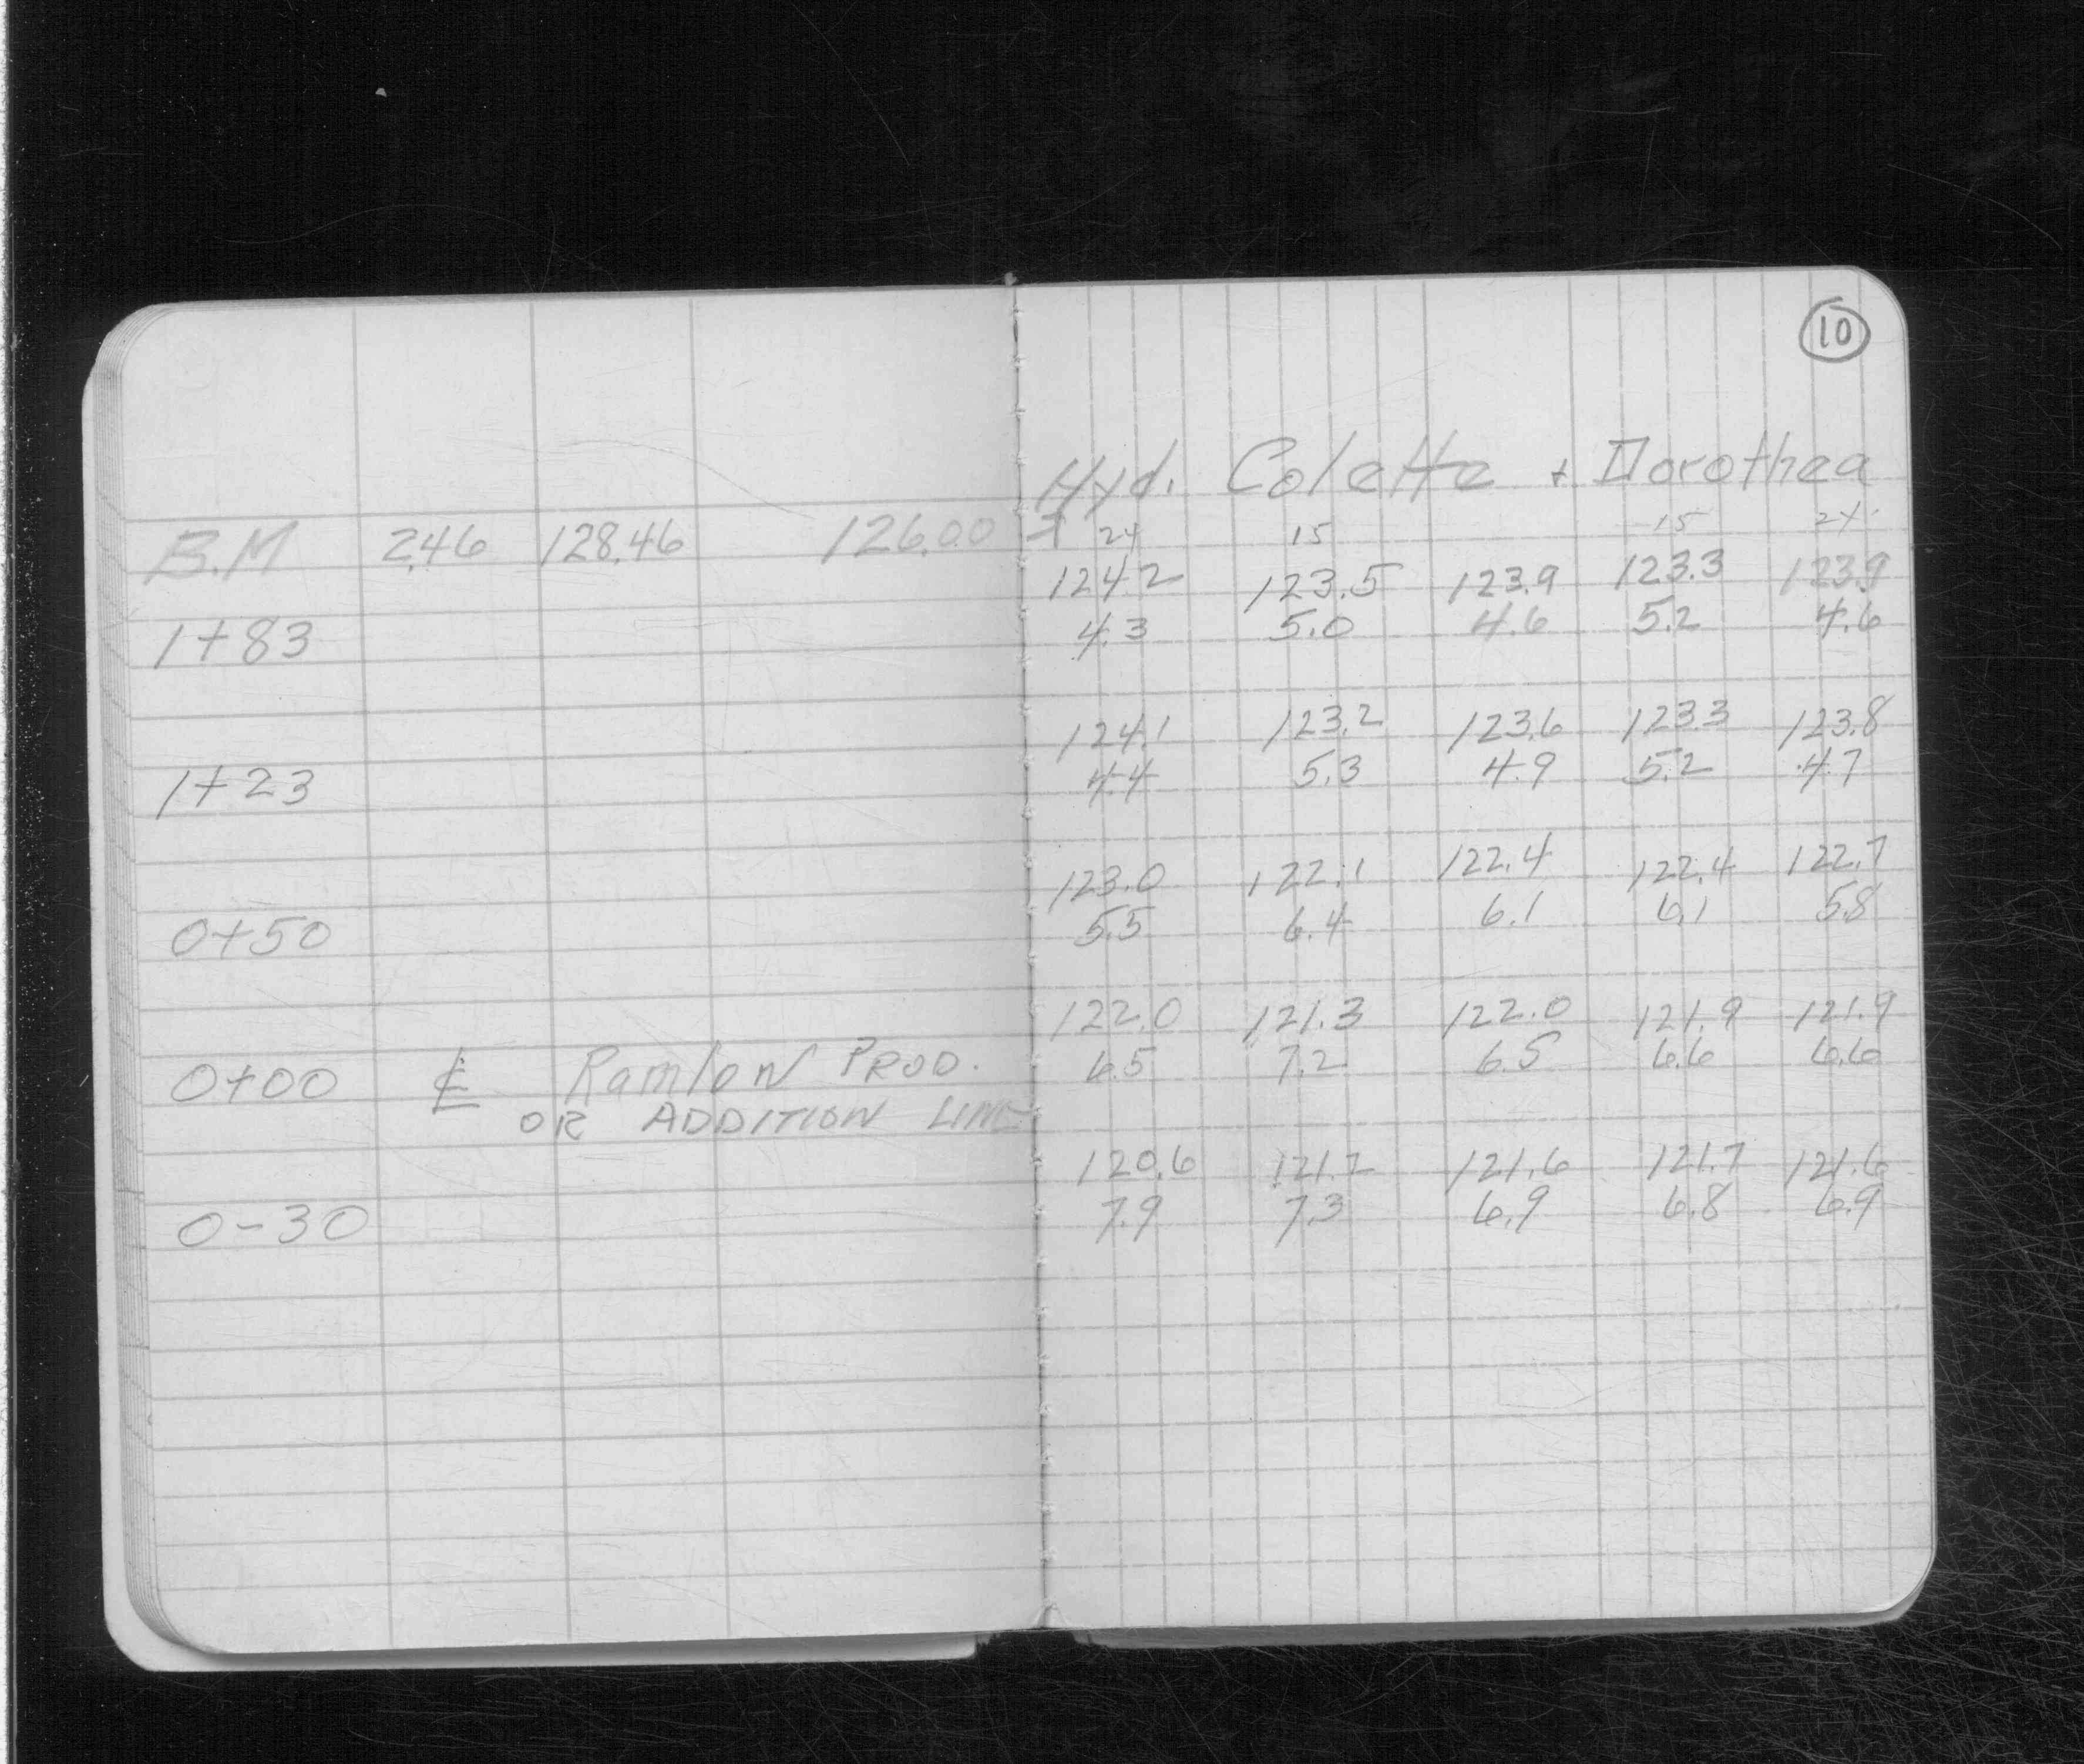 10
Hyd. Colette + Dorothea
B.M 2.46 128.46 126.00
24 15 15 24
124.2 123.5 123.9 123.3 123.9
1+83 4.3 5.0 4.6 5.2 4.6
124.1 123.2 123.6 123.3 123.8
1+23 4.4 5.3 4.9 5.2 4.7
123.0 122.1 122.4 122.4 122.7
0+50 5.5 6.4 6.1 6.1 5.8
122.0 121.3 122.0 121.9 121.9
0+00 ℄ Ramlon PROD. 6.5 7.2 6.5 6.6 6.6
OR ADDITION LINE
120.6 121.2 121.6 121.7 121.6
0-30 7.9 7.3 6.9 6.8 6.9